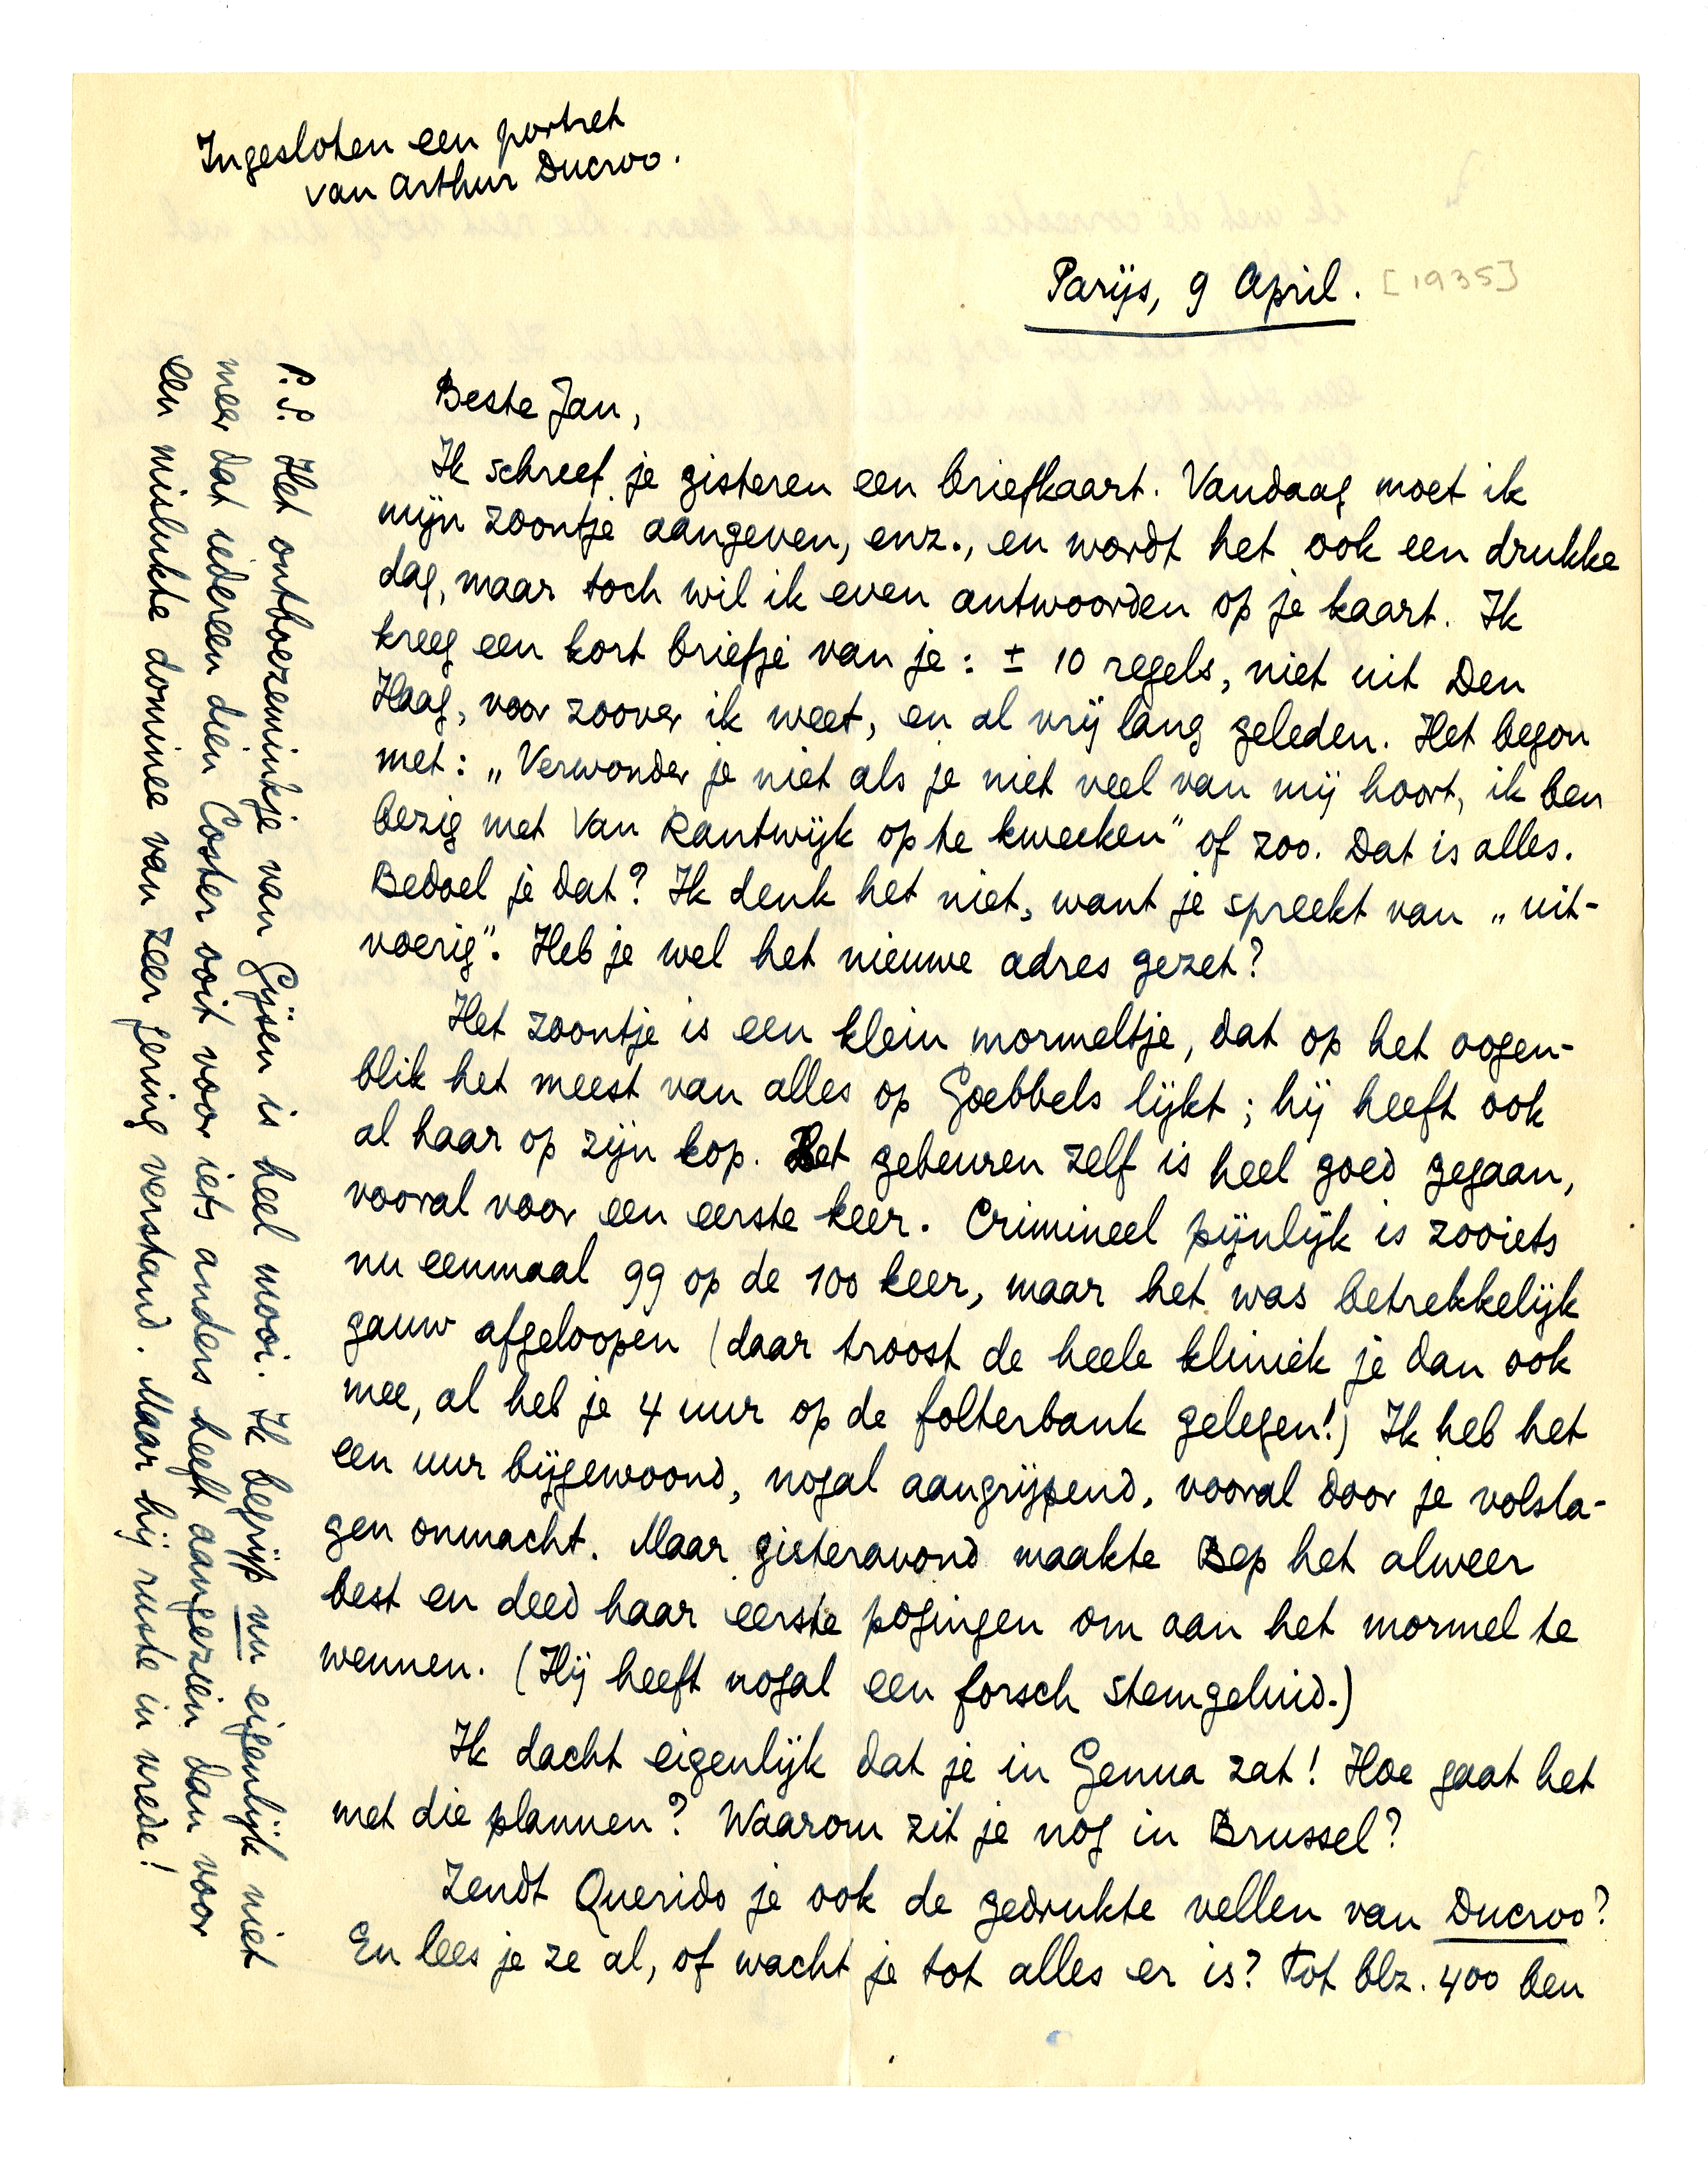 Ingesloten een portret
van Arthur Ducroo.
Parijs, 9 April. [1935]
Beste Jan,
Ik schreef je gisteren een briefkaart. Vandaag moet ik
mijn zoontje aangeven, enz., en wordt het ook een drukke
dag, maar toch wil ik even antwoorden op je kaart. Ik
kreeg een kort briefje van je: ± 10 regels, niet uit Den
Haag, voor zoover ik weet, en al vrij lang geleden. Het begon
met: „Verwonder je niet als je niet veel van mij hoort, ik ben
bezig met Van Kantwijk op te kweeken” of zoo. Dat is alles.
Bedoel je dat? Ik denk het niet, want je spreekt van „uit-
voerig”. Heb je wel het nieuwe adres gezet?
Het zoontje is een klein mormeltje, dat op het oogen-
blik het meest van alles op Goebbels lijkt; hij heeft ook
al haar op zijn kop. Het gebeuren zelf is heel goed gegaan,
vooral voor een eerste keer. Crimineel pijnlijk is zooiets
nu eenmaal 99 op de 100 keer, maar het was betrekkelijk
gauw afgeloopen (daar troost de heele kliniek je dan ook
mee, al heb je 4 uur op de folterbank gelegen!) Ik heb het
een uur bijgewoond, nogal aangrijpend, vooral door je volsla-
gen onmacht. Maar gisteravond maakte Bep het alweer
best en deed haar eerste pogingen om aan het mormel te
wennen. (Hij heeft nogal een forsch stemgeluid.)
Ik dacht eigenlijk dat je in Genua zat! Hoe gaat het
met die plannen? Waarom zit je nog in Brussel?
Zendt Querido je ook de gedrukte vellen van Ducroo?
En lees je ze al, of wacht je tot alles er is? Tot blz. 400 ben
P.S. Het ontboezeminkje van Gijsen is heel mooi. Ik begrijp nu eigenlijk niet
meer dat iedereen dien Coster ooit voor iets anders heeft aangezien dan voor
een mislukte dominee van zeer gering verstand. Maar hij ruste in vrede!